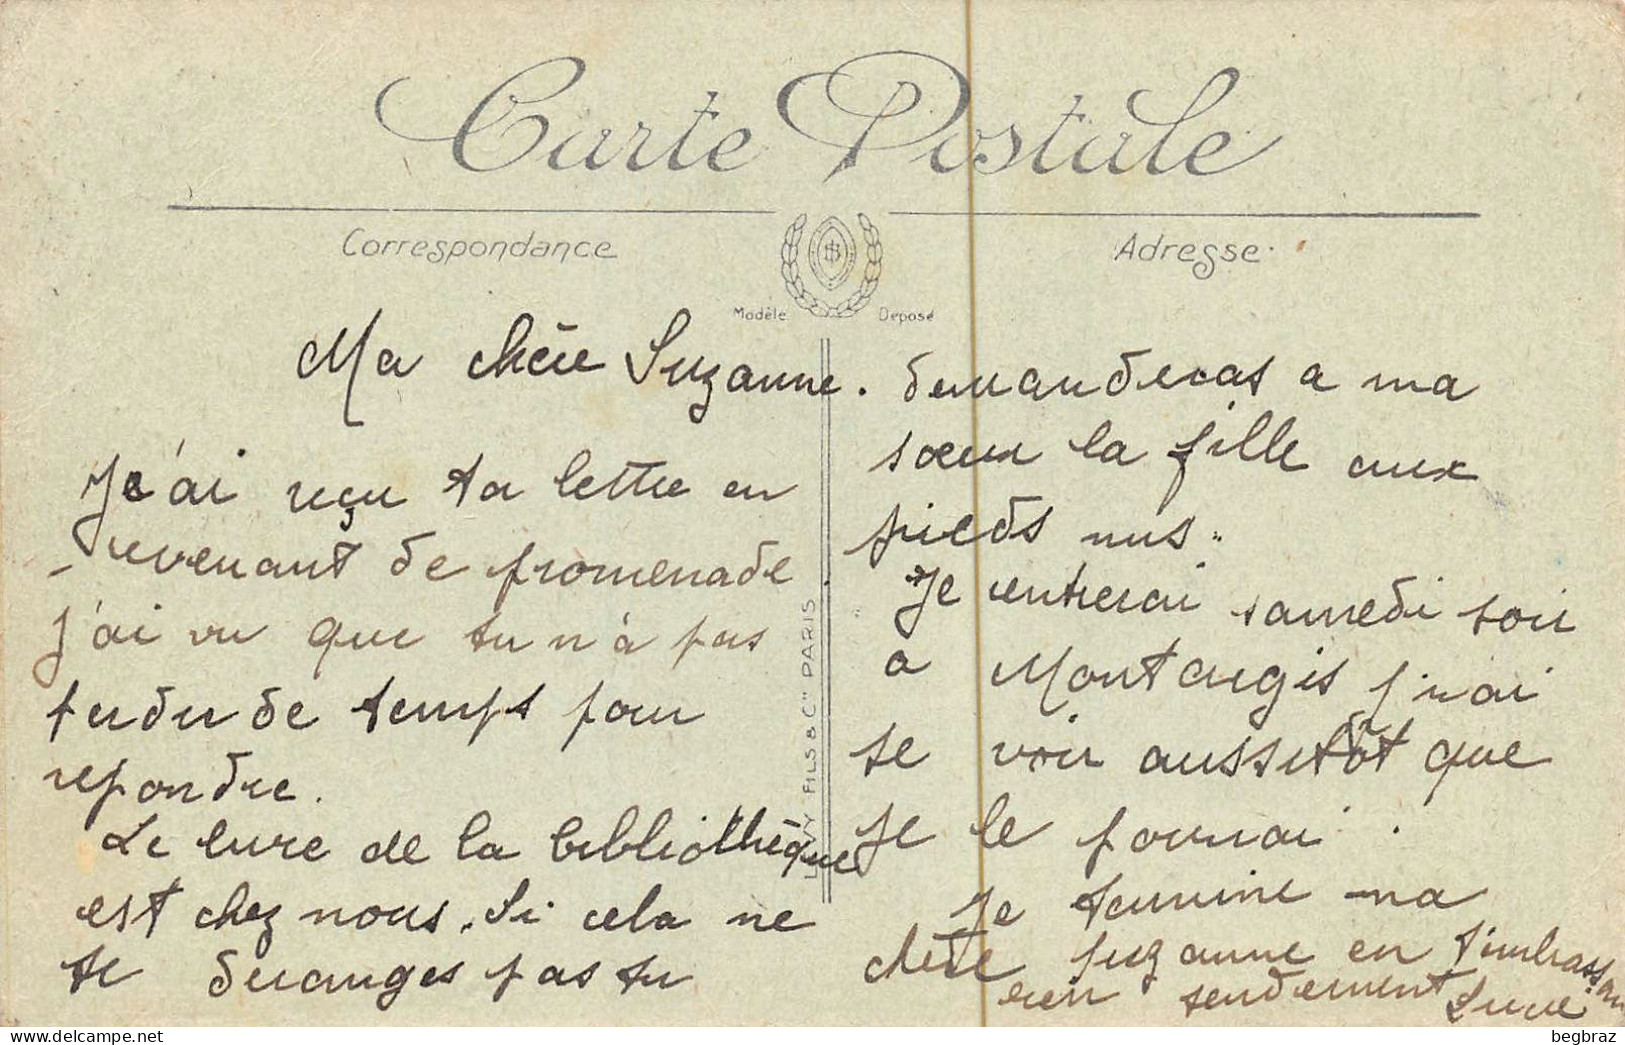 Carte Postale
Correspondance
Adresse
Modèle Déposé
Ma chère Suzanne.
J'ai reçu ta lettre en
revenant de promenade
j'ai vu que tu n'à pas
perdu de temps pour
repondre.
Le livre de la bibliothèque
est chez nous. Si cela ne
te deranges pas tu
LÉVY FILS & Cie PARIS
demanderas a ma
sœur la fille aux
pieds nus.
Je rentrerai samedi soir
a Montargis j'irai
te voir aussitôt que
je le pourrai.
Je termine ma
chère Suzanne en t'embrassant
bien tendrement
begbraz